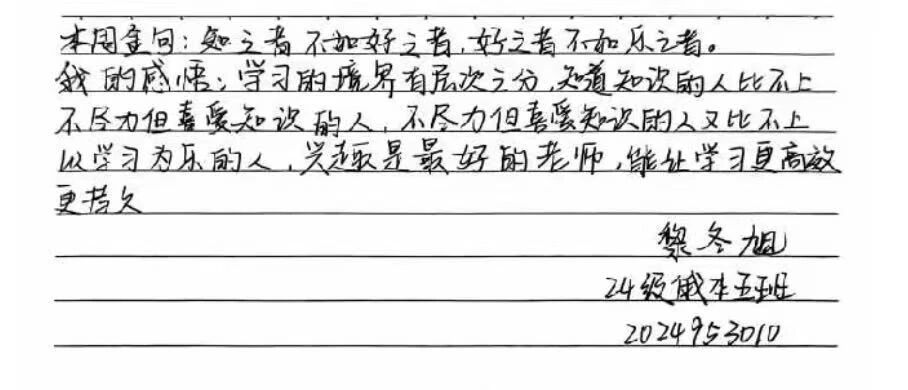 本周金句：知之者不如好之者，好之者不如乐之者。
我的感悟：学习的境界有层次之分，知道知识的人比不上
不尽力但喜爱知识的人，不尽力但喜爱知识的人又比不上
以学习为乐的人，兴趣是最好的老师，能让学习更高效
更持久
黎冬旭
24级俄本五班
2024953010